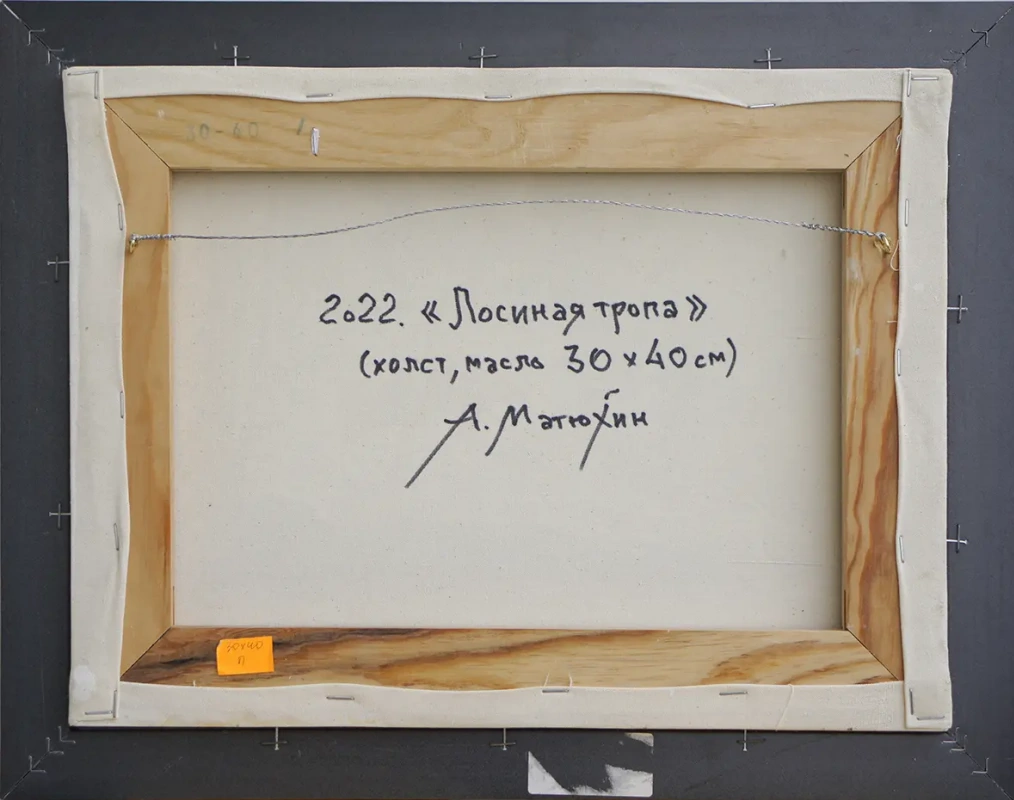 30-40
2022. «Лосиная тропа»
(холст, масло 30 x 40 см)
А. Матюхин
30x40
П